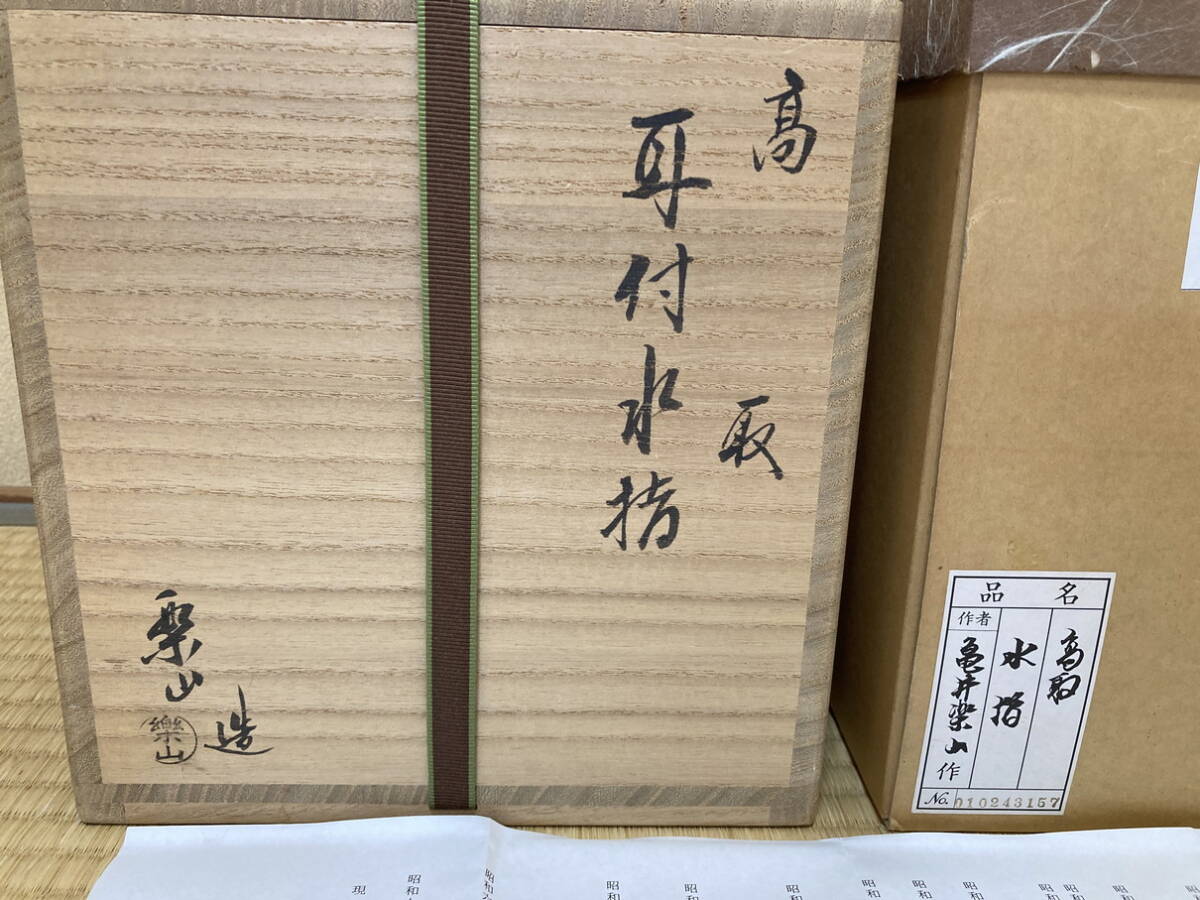 高取
耳付水指
楽山
造
樂山
品名
高取
水指
作者
亀井楽山作
No. 010243157
昭和
昭和
昭和
昭和
昭和
昭和
昭和
昭和
昭和
昭和
昭和
昭和
現